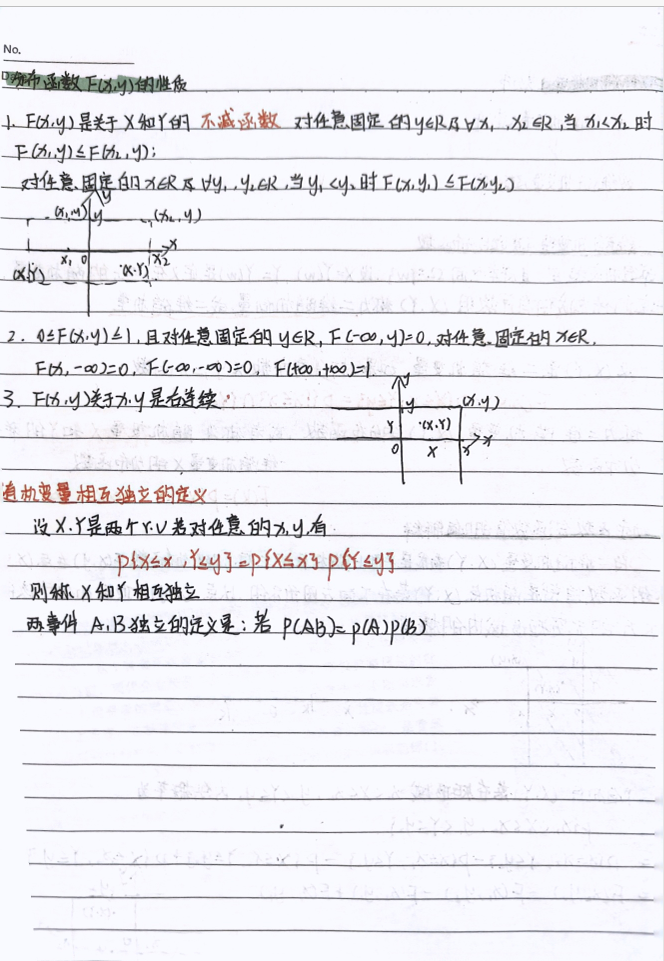 No.
分布函数 F(x,y) 的性质
1. F(x,y) 是关于 X 和 Y 的 不减函数 对任意固定的 y∈R 及 ∀x₁, x₂∈R, 当 x₁<x₂ 时
F(x₁,y)≤F(x₂,y);
对任意固定的 x∈R 及 ∀y₁, y₂∈R, 当 y₁<y₂ 时 F(x,y₁)≤F(x,y₂)
y
(x₁,y) y (x₂,y)
x₁ 0 x₂ x
(X,Y) (X,Y)
2. 0≤F(x,y)≤1, 且对任意固定的 y∈R, F(-∞,y)=0, 对任意固定的 x∈R,
F(x,-∞)=0, F(-∞,-∞)=0, F(+∞,+∞)=1
3. F(x,y) 关于 x,y 是右连续.
y
y (x,y)
Y (X,Y)
0 X x x
机变量相互独立的定义
设 X,Y 是两个 r.v 若对任意的 x,y, 有
P{X≤x, Y≤y}=P{X≤x} P{Y≤y}
则称 X 和 Y 相互独立
两事件 A,B 独立的定义是: 若 P(AB)=P(A)P(B)